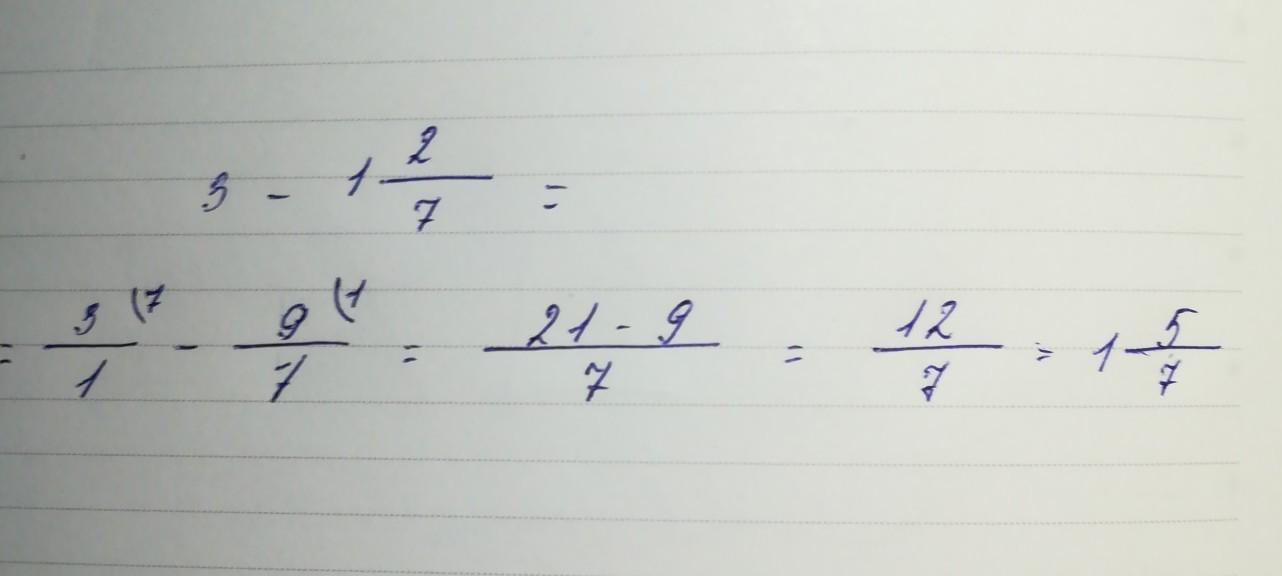 3 - 1 2/7 =
= 3/1 (7 - 9/7 (1 = 21 - 9/7 = 12/7 = 1 5/7